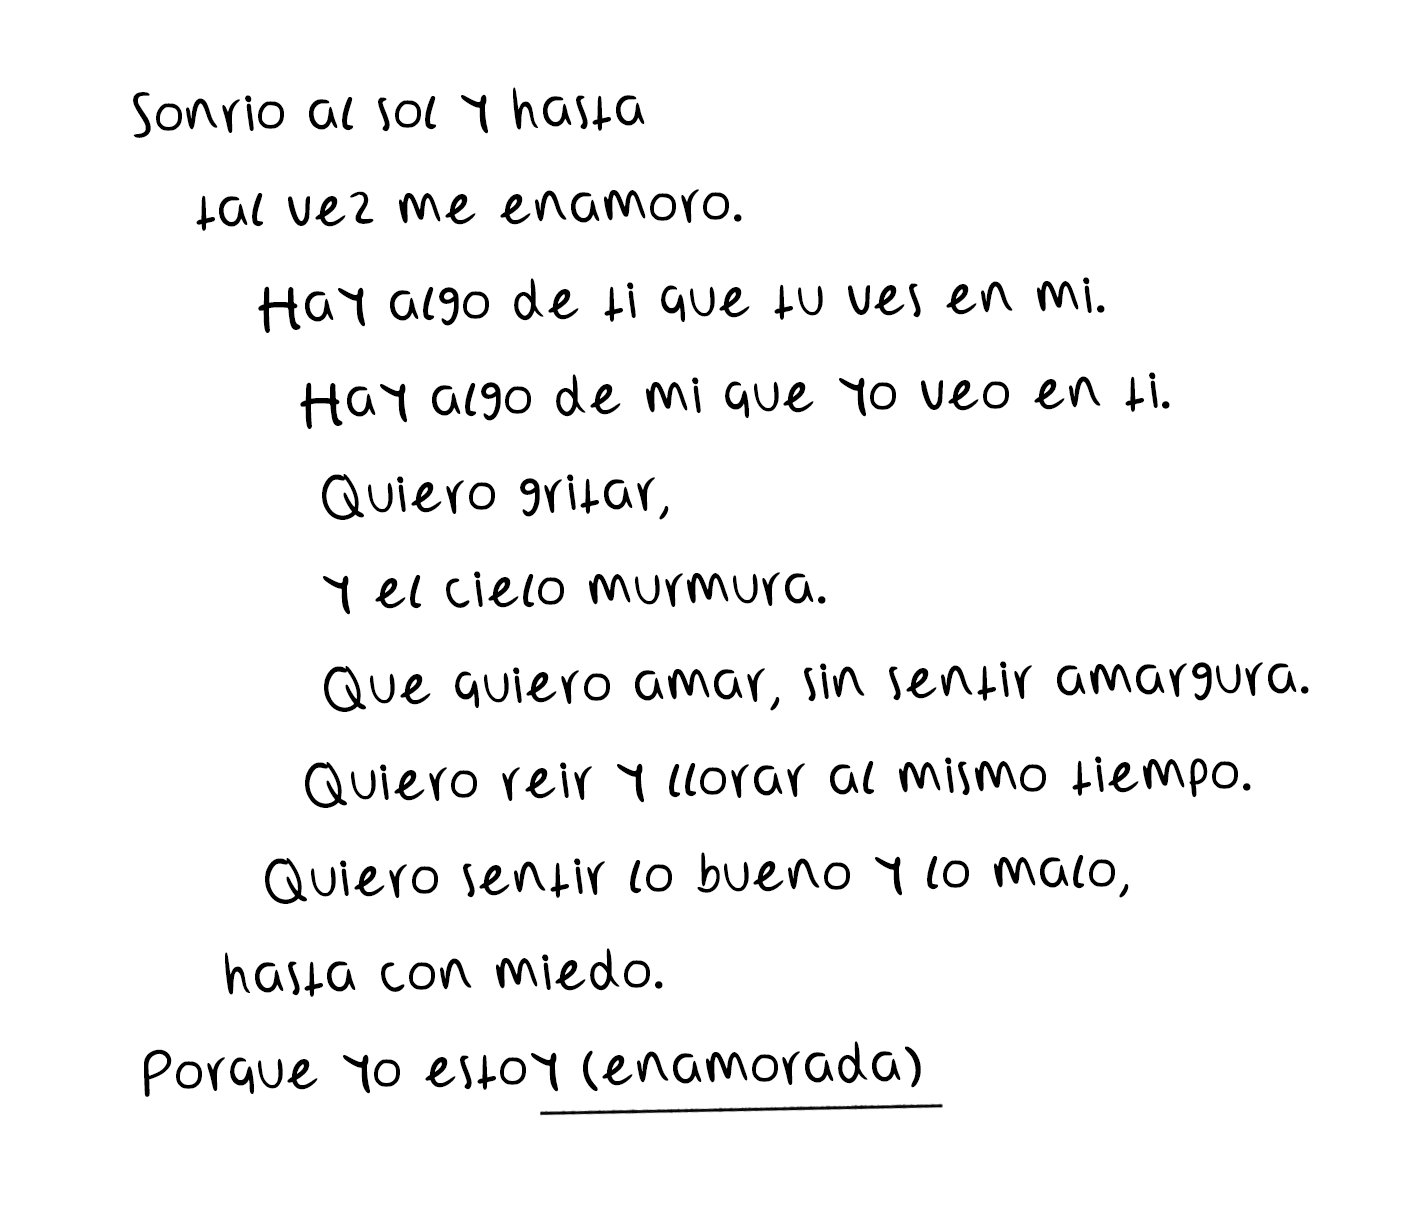 Sonrio al sol y hasta
tal vez me enamoro.
Hay algo de ti que tu ves en mi.
Hay algo de mi que yo veo en ti.
Quiero gritar,
y el cielo murmura.
Que quiero amar, sin sentir amargura.
Quiero reir y llorar al mismo tiempo.
Quiero sentir lo bueno y lo malo,
hasta con miedo.
Porque yo estoy (enamorada)